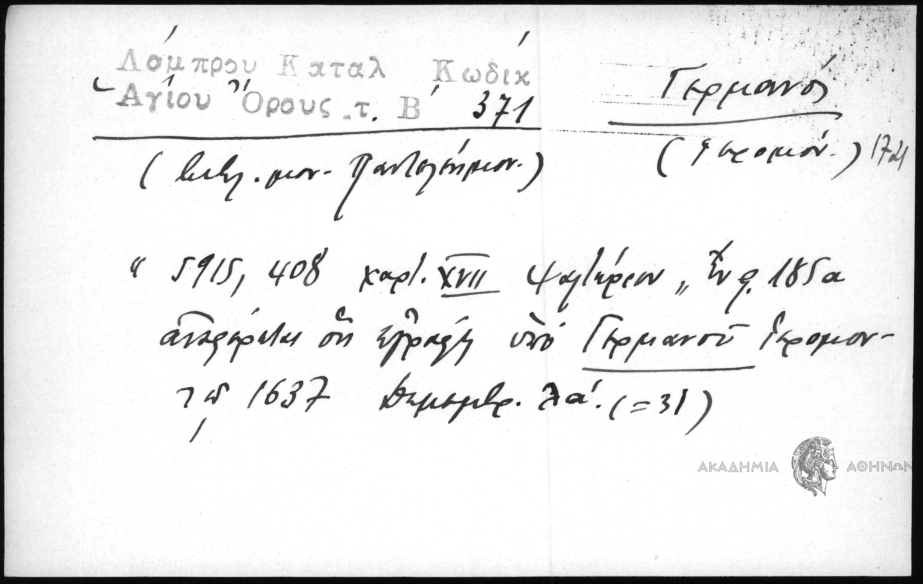 Λάμπρου Καταλ Κωδίκ
Ἁγίου Ὄρους τ. Β' 371
Γερμανός
(μον. Παντελεήμον.)
(ἱερομόν.)
" 5915, 408 χαρτ. XVII Ψαλτήριον „ Ἐν φ. 185α
ἀναφέρεται ὅτι ἐγράφη ὑπὸ Γερμανοῦ ἱερομον-
τῷ 1637 λα'. (=31)
ΑΚΑΔΗΜΙΑ ΑΘΗΝΩΝ